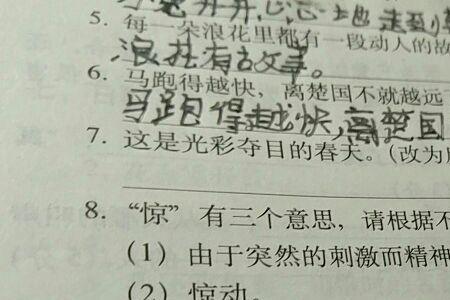 5. 每一朵浪花里都有一段动人的故
浪花有故事。
6. 马跑得越快，离楚国不就越远
马跑得越快，离楚国
7. 这是光彩夺目的春天。（改为
8. “惊”有三个意思，请根据不
（1）由于突然的刺激而精神
（2）惊动。